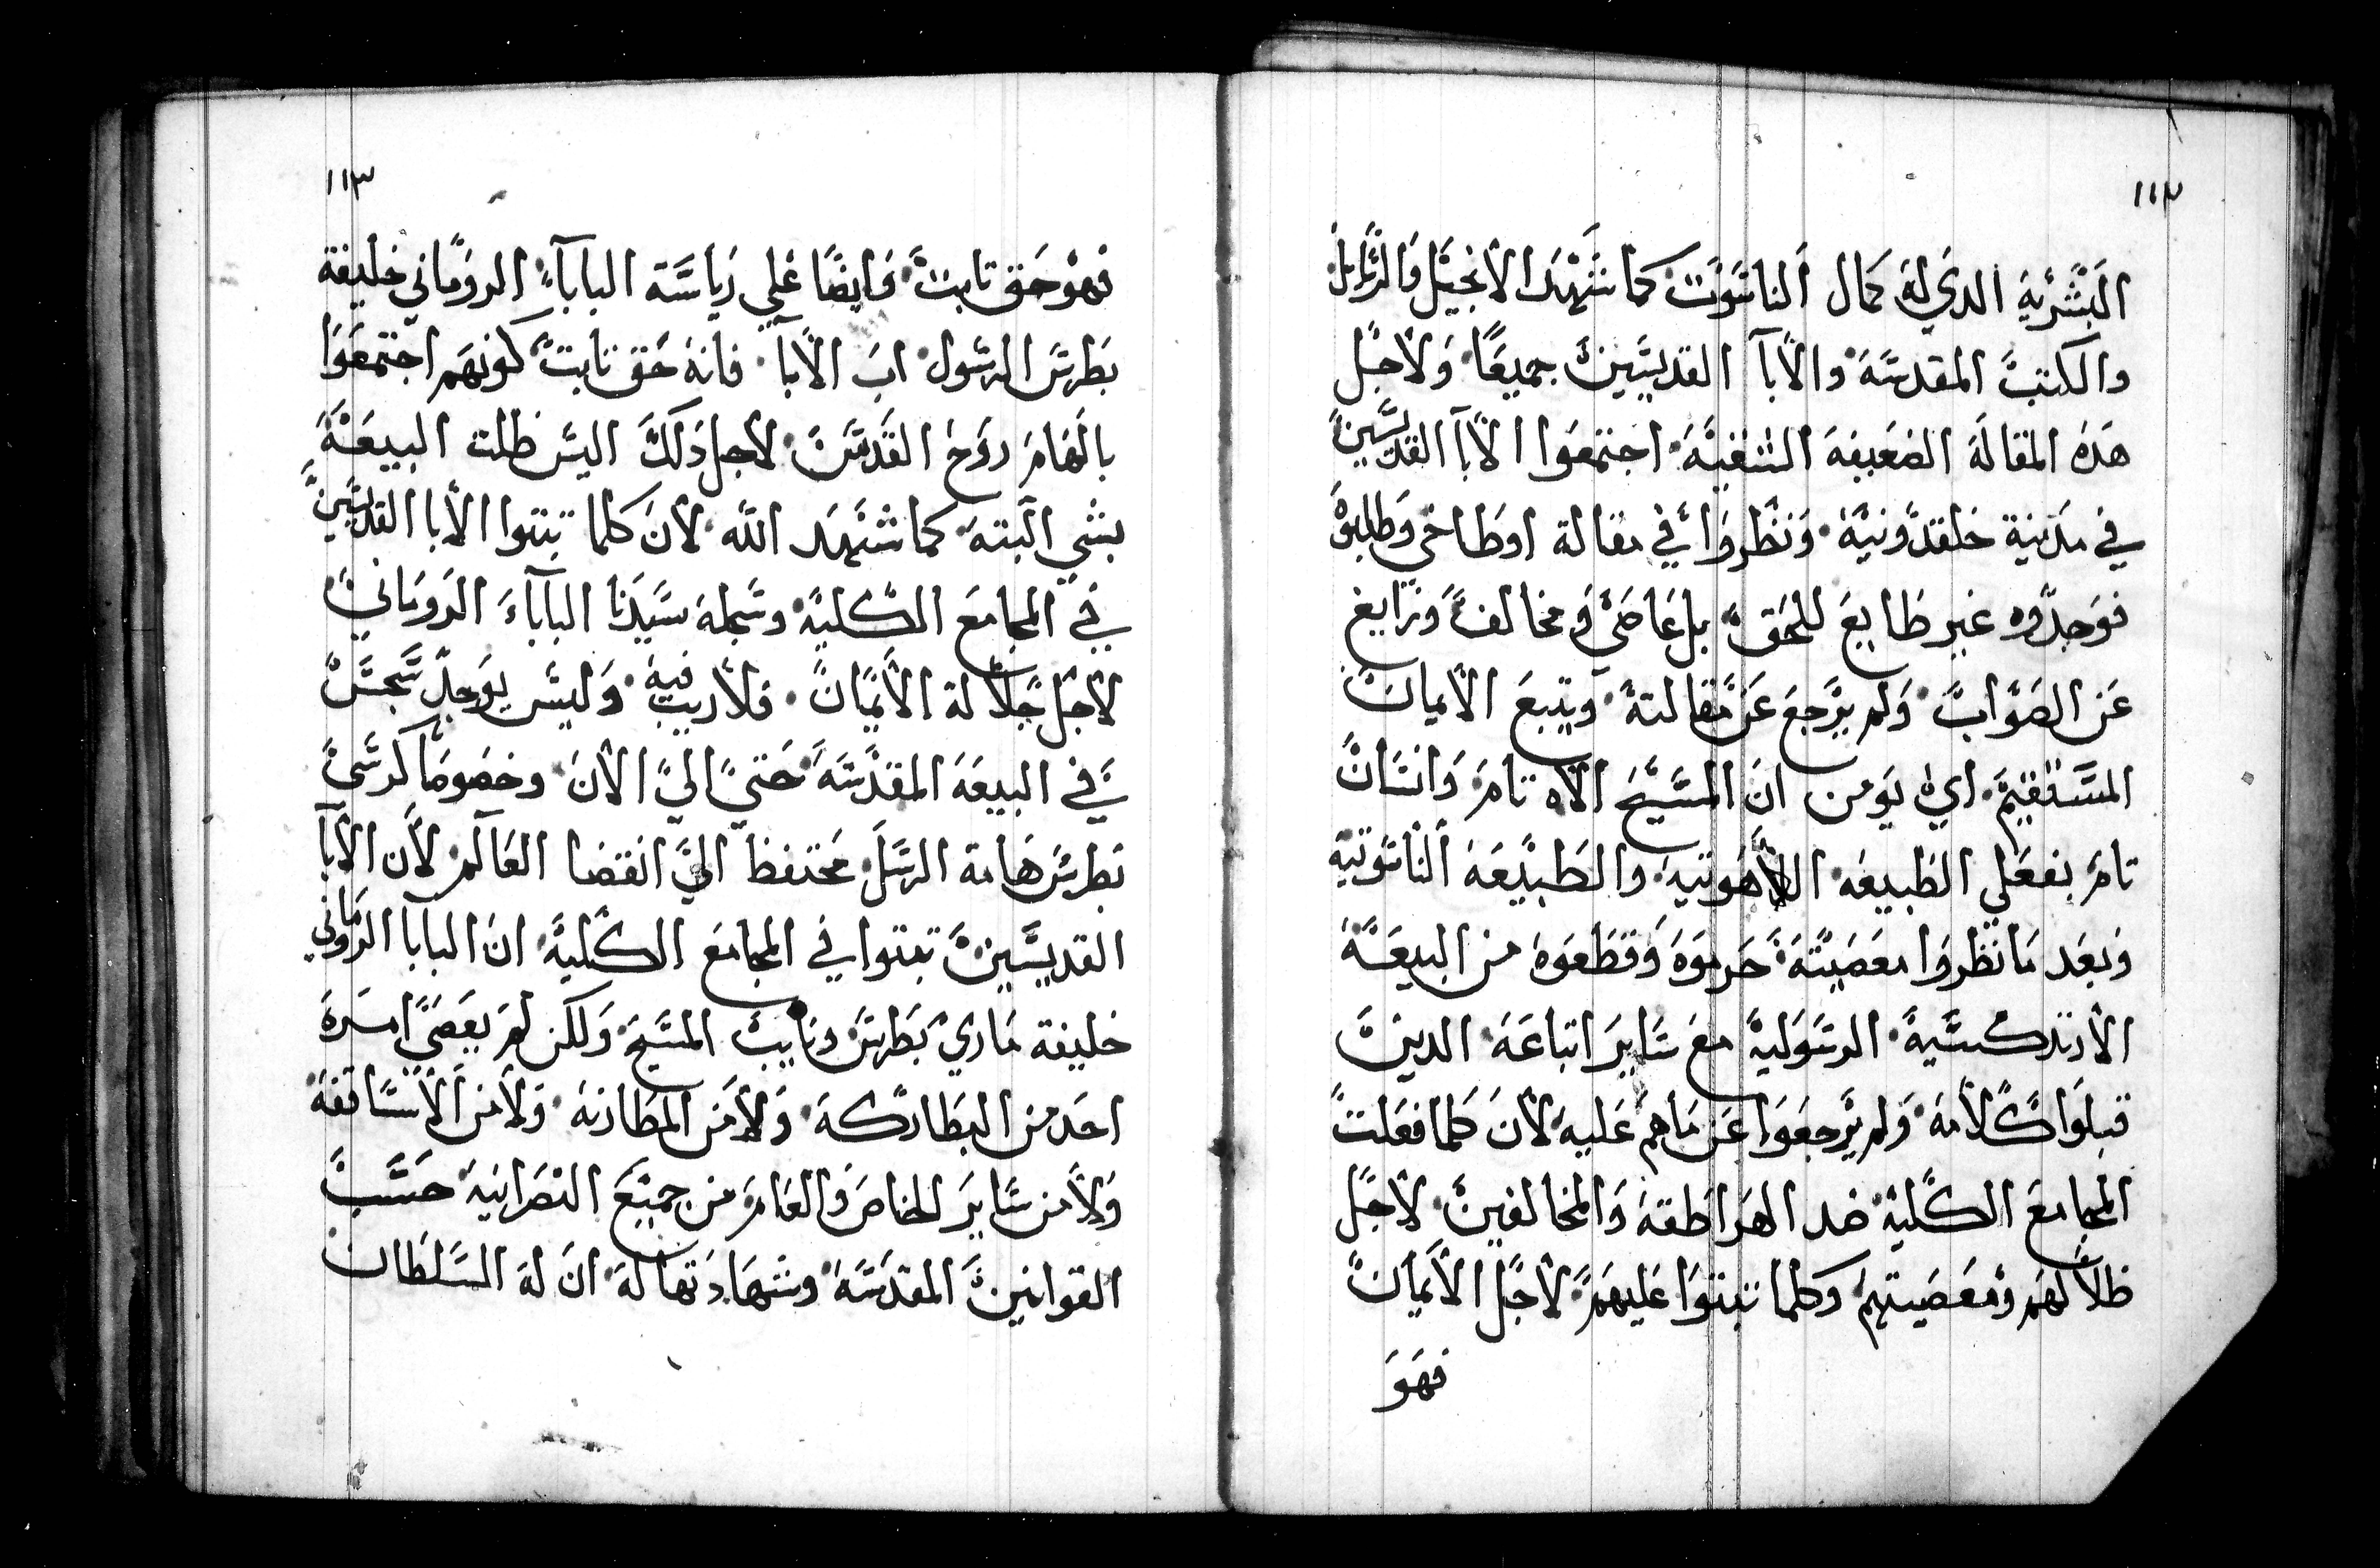 ١١٢
البشرية الدي له كمال الناسوت كما شهد الانجيل والرسايل
والكتب المقدسه والابآ القديسين جميعا ولاجل
هده المقاله الضعيفه الشقيه اجتمعوا الابآ القديسين
في مدينة خلقدونيه ونظروا في مقالة اوطاخي وطلبوه
فوجدوه غير طايع للحق بل عاصي ومخالف وزايغ
عن الصواب ولم يرجع عن مقالته ويتبع الايمان
المستقيم اي يومن ان المسيح الاه تام وانسان
تام بفعلي الطبيعه اللاهوتيه والطبيعه الناسوتيه
وبعد ما نظروا معصيته حرموه وقطعوه من البيعه
الارتدكسيه الرسوليه مع ساير اتباعه الدين
قبلوا كلامه ولم يرجعوا عن ماهم عليه لان كلما فعلت
المجامع الكليه ضد الهراطقه والمخالفين لاجل
ظلالهم ومعصيتهم وكلما تبتوا عليهم لاجل الايمان
فهو
١١٣
فهو حق تابت وايضا علي رياسة البابآء الروماني خليفة
بطرس الرسول اب الابا فانه حق تابت كونهم اجتمعوا
بالهام روح القدس لاجل دلك اليس ظلت البيعه
بشي البته كما شهد الله لان كلما تبتوا الابا القديسين
في المجامع الكليه وسجله سيدنا البابآء الروماني
لاجل جلالة الايمان فلا ريب فيه وليس يوجد سجس
في البيعه المقدسه حتي الي الان وخصوصا كرسي
بطرس هامة الرسل محتفظ الي انقضا العالم لان الابآ
القديسين تبتوا في المجامع الكليه ان البابا الروماني
خليفة ماري بطرس ونايب المسيح ولكن لم يعصي امره
احد من البطاركه ولا من المطارنه ولا من الاساقفه
ولا من ساير الخاص والعام من جميع النصرانيه حسب
القوانين المقدسه وشهادتها له ان له السلطان